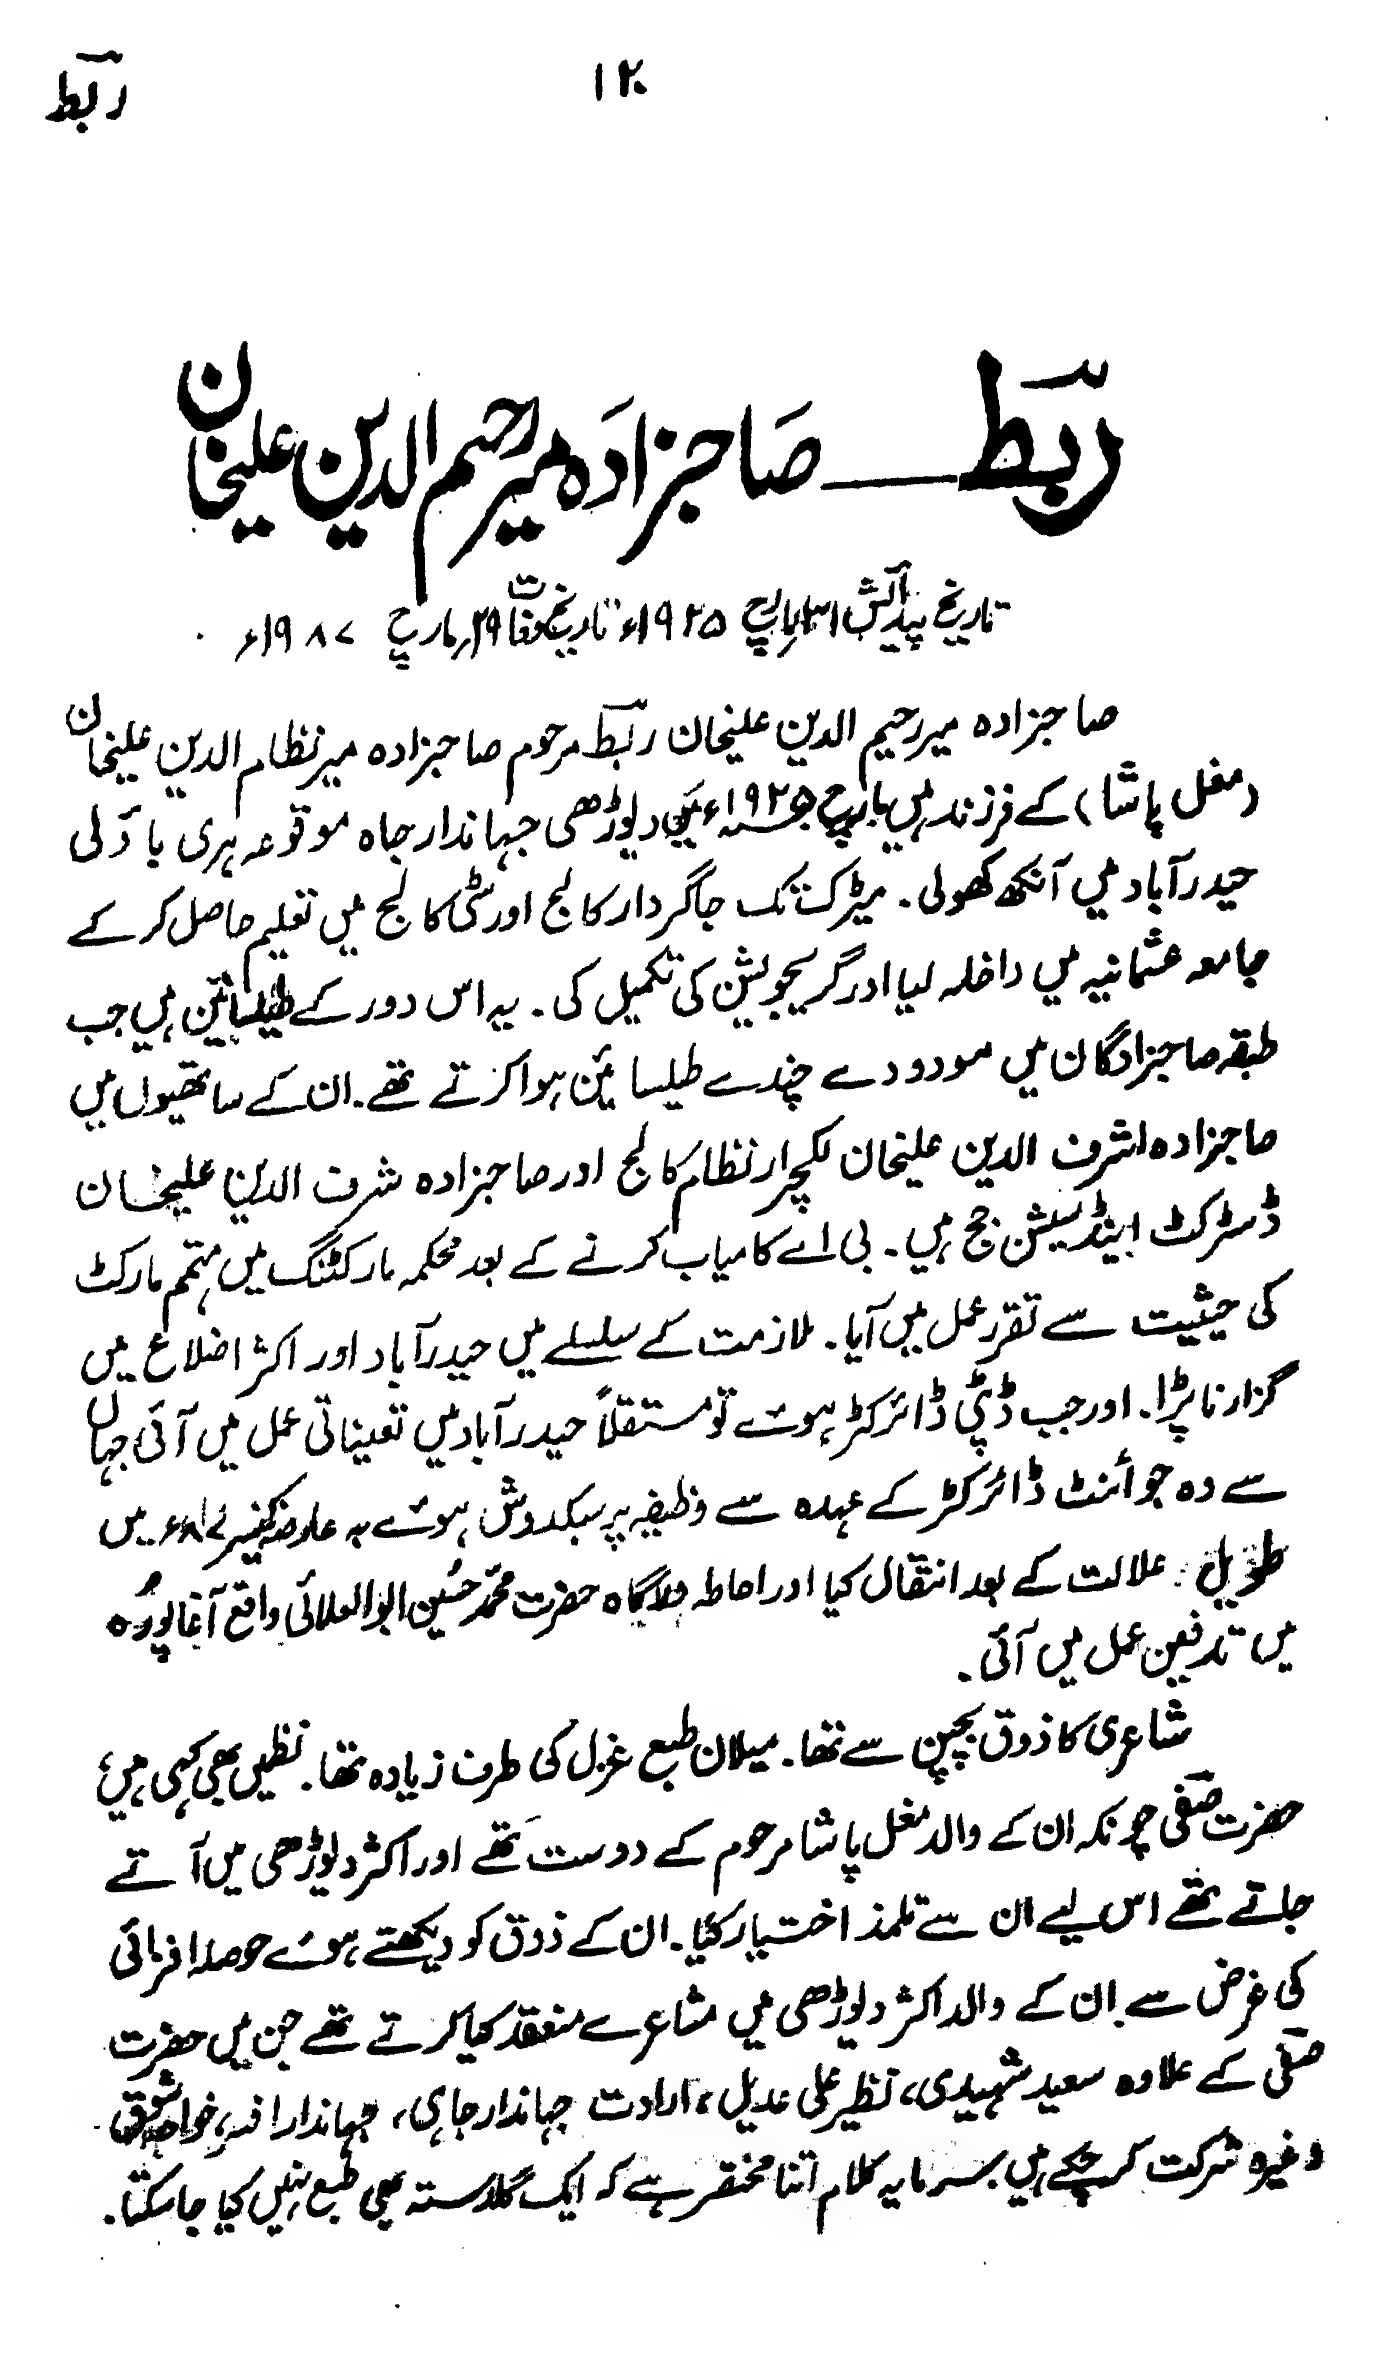 ربط
۱۲۰
ربط — صاحبزادہ میر رحیم الدین علیخان
تاریخ پیدائش ۱۳؍مارچ ۱۹۲۵ء تاریخ وفات ۲۹؍مارچ ۱۹۸۷ء
صاحبزادہ میر رحیم الدین علیخان ربط مرحوم صاحبزادہ میر نظام الدین علیخان
(مغل پاشا) کے فرزند ہیں مارچ ۱۹۲۵ء میں دیوڑھی جہاندار جاہ موقوعہ ہری باؤلی
حیدرآباد میں آنکھ کھولی۔ میٹرک تک جاگیردار کالج اور سٹی کالج میں تعلیم حاصل کر کے
جامعہ عثمانیہ میں داخلہ لیا اور گریجویشن کی تکمیل کی۔ یہ اس دور کے طیلسائین ہیں جب
طبقہ صاحبزادگان میں معدودے چندے طیلسائین ہوا کرتے تھے۔ ان کے ساتھیوں میں
صاجزادہ اشرف الدین علیخان لکچرار نظام کالج اور صاحبزادہ شرف الدین علیخان
ڈسٹرکٹ اینڈ سیشن جج ہیں۔ بی اے کامیاب کرنے کے بعد محکمہ مارکٹنگ میں مہتمم مارکٹ
کی حیثیت سے تقرر عمل میں آیا۔ ملازمت کے سلسلے میں حیدرآباد اور اکثر اضلاع میں
گزارنا پڑا۔ اور جب ڈپٹی ڈائرکٹر ہوئے تو مستقلاً حیدرآباد میں تعیناتی عمل میں آئی جہاں
سے وہ جوائنٹ ڈائرکٹر کے عہدہ سے وظیفہ پر سبکدوش ہوئے بہ عارضہ کینسر ۸۷ء میں
طویل علالت کے بعد انتقال کیا اور احاطہ درگاہ حضرت محمد حسین ابوالعلائی واقع آغا پورہ
میں تدفین عمل میں آئی۔
شاعری کا ذوق بچپن سے تھا۔ میلان طبع غزل کی طرف زیادہ تھا۔ نظمیں بھی کہی ہیں،
حضرت صفی چونکہ ان کے والد مغل پاشا مرحوم کے دوست تھے اور اکثر دیوڑھی میں آتے
جاتے تھے اس لیے ان سے تلمذ اختیار کیا۔ ان کے ذوق کو دیکھتے ہوئے حوصلہ افزائی
کی غرض سے ان کے والد اکثر دیوڑھی میں مشاعرے منعقد کیا کرتے تھے جن میں حضرت
صفی کے علاوہ سعید شہیدی، نظیر علی عدیل، ارادت جہاندار جاہی، جہاندار افسر، خواجہ شوق
وغیرہ شرکت کر چکے ہیں سرمایہ کلام اتنا مختصر ہے کہ ایک گلدستہ بھی طبع نہیں کیا جا سکتا۔